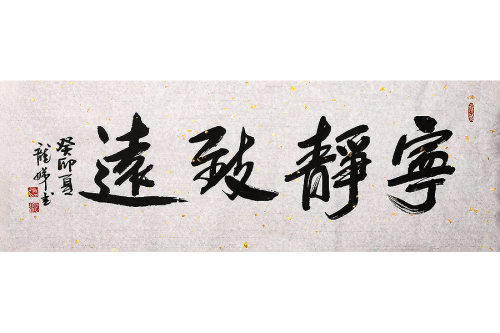 寧靜致遠
癸卯夏
龍峰书